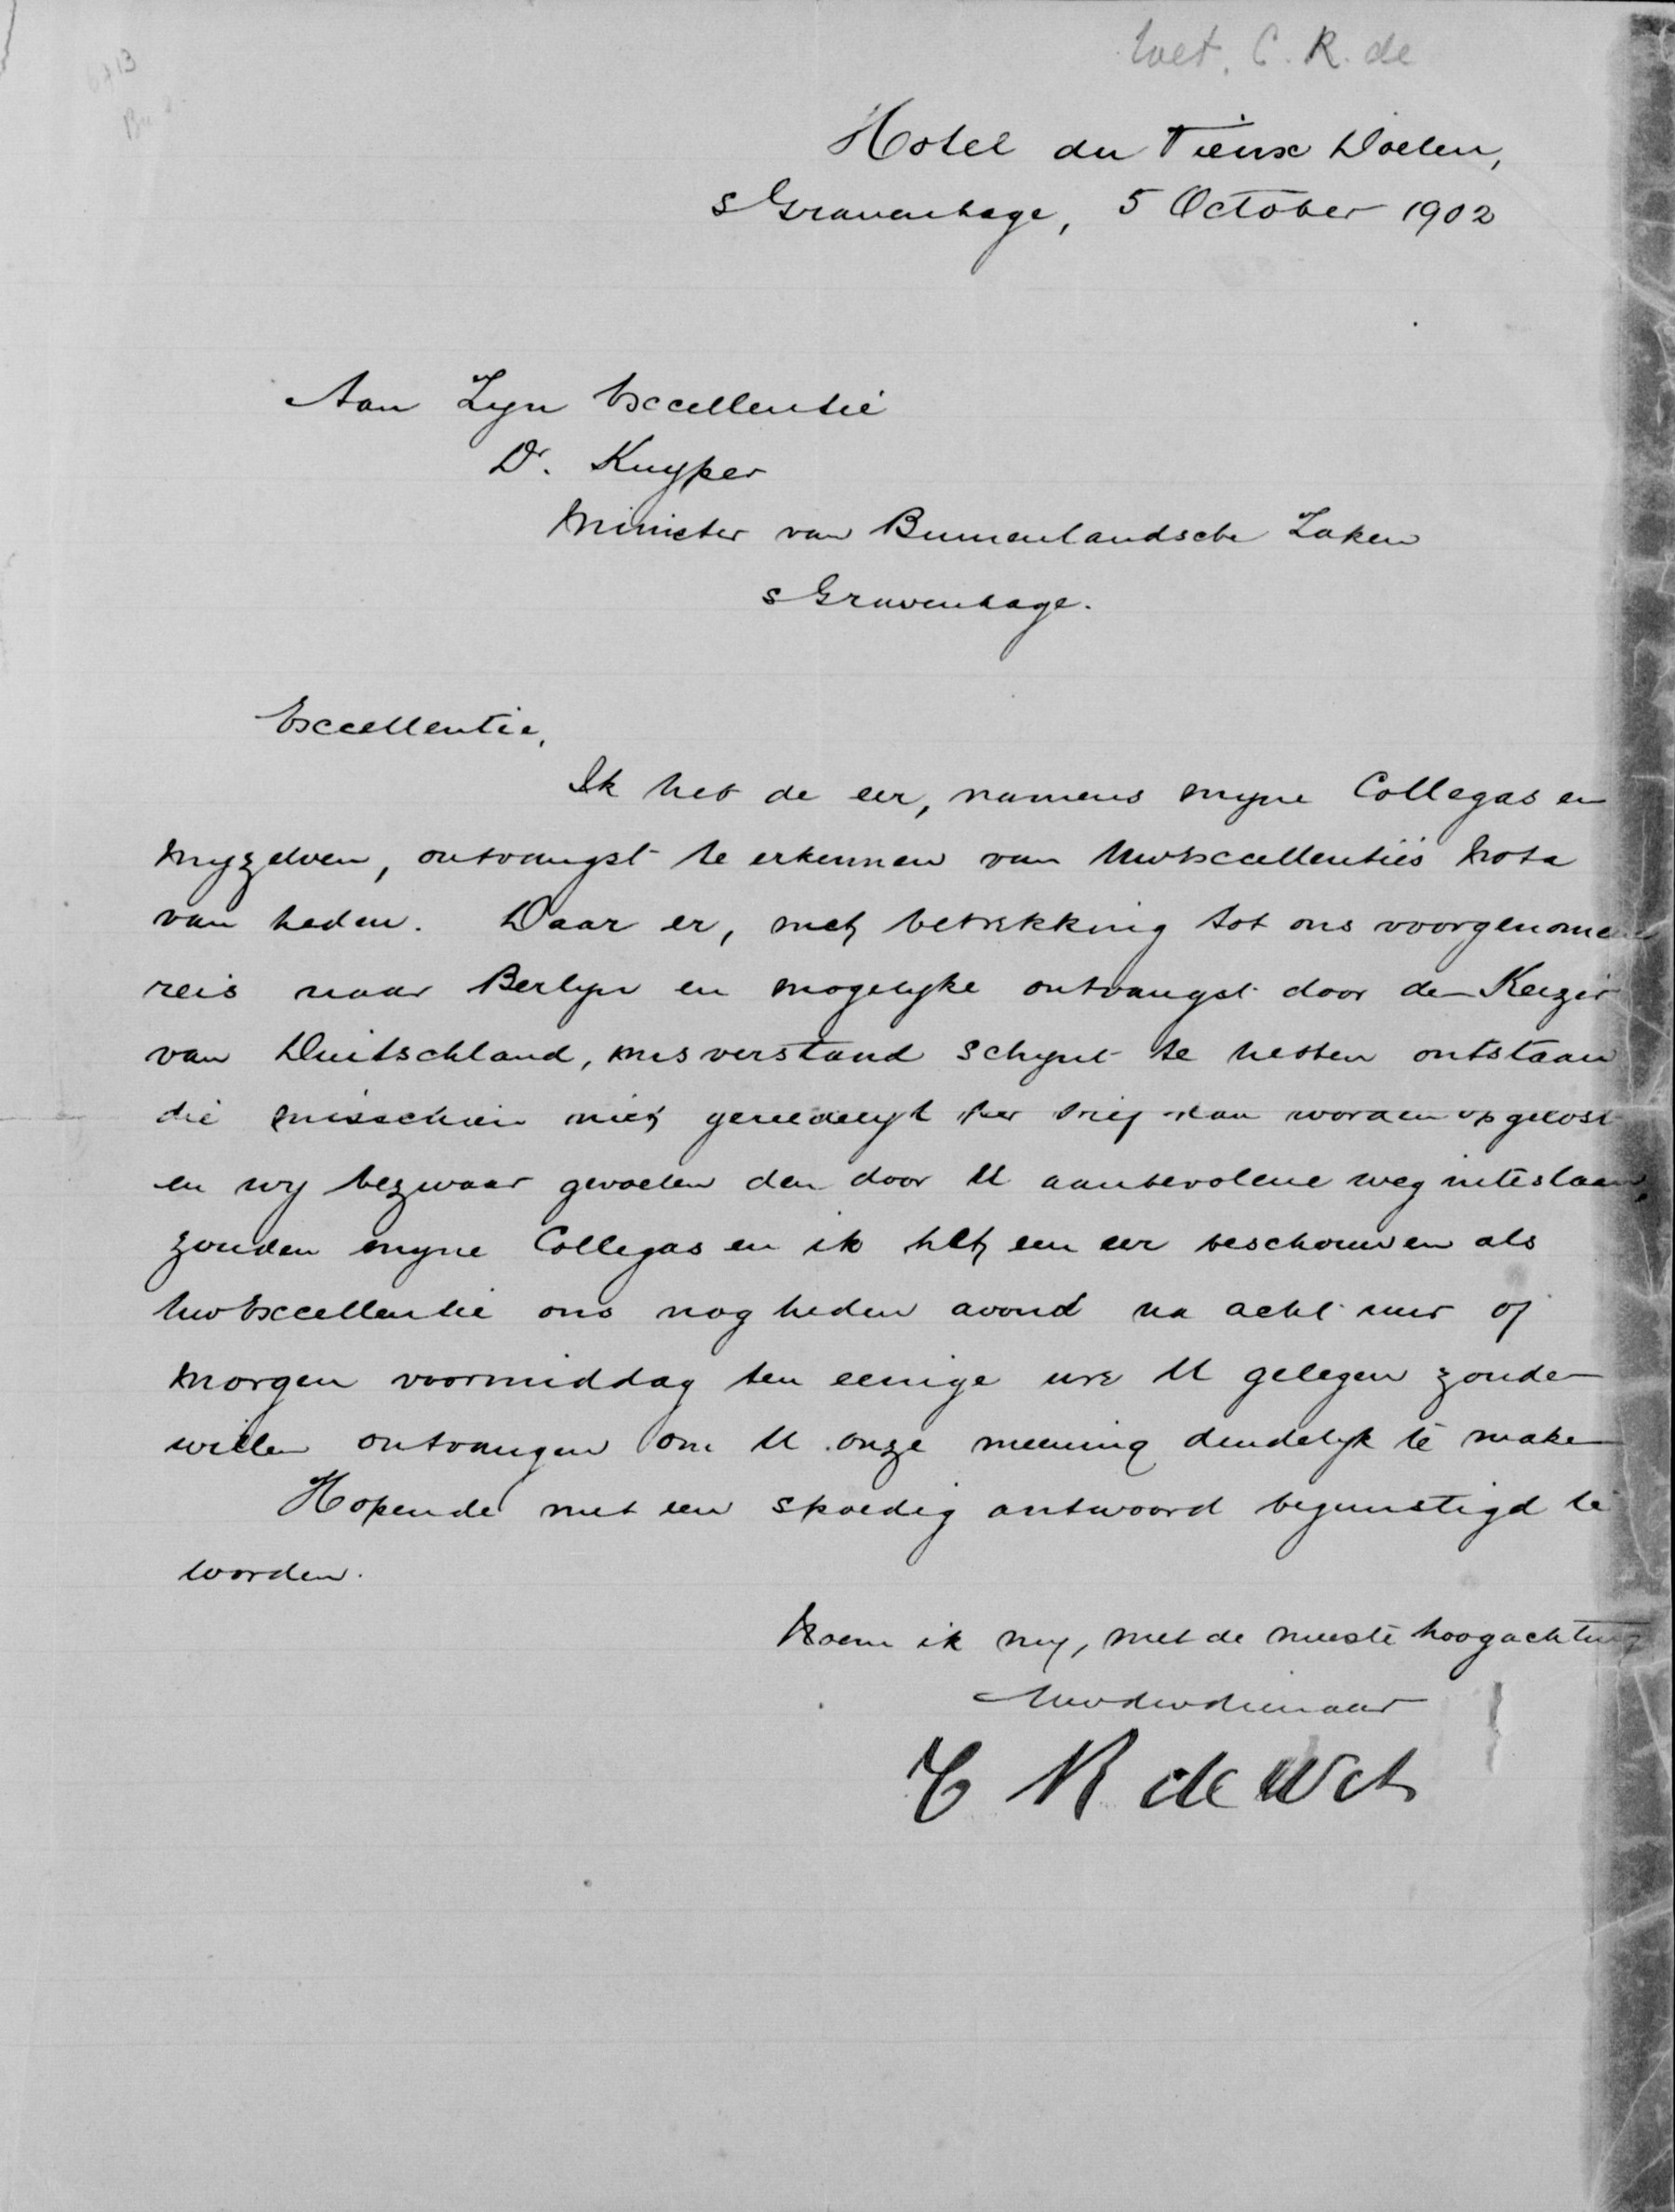 Wet, C. R. de
Hotel du Vieux Doelen,
s Gravenhage, 5 October 1902
Aan Zyn Excellentie
Dr. Kuyper
Minister van Binnenlandsche Zaken
s Gravenhage.
Excellentie,
Ik heb de eer, namens myne Collegas en
myzelven, ontvangst te erkennen van Uw Excellentiës Nota
van heden. Daar er, met betrekking tot ons voorgenomen
reis naar Berlyn en mogelyke ontvangst door den Keizer
van Duitschland, misverstand schynt te hebben ontstaan
die misschien niet geredelyk per brief kan worden opgelost
en wy bezwaar gevoelen den door U aanbevolene weg inteslaan,
zouden myne Collegas en ik het een eer beschouwen als
Uw Excellentie ons nog heden avond na acht uur of
morgen voormiddag ten eenige ure U gelegen zoude
willen ontvangen om U onze meening duidelyk te maken
Hopende met een spoedig antwoord begunstigd te
worden.
Noem ik my, met de meeste hoogachting
Uw dw dienaar
C R de Wet